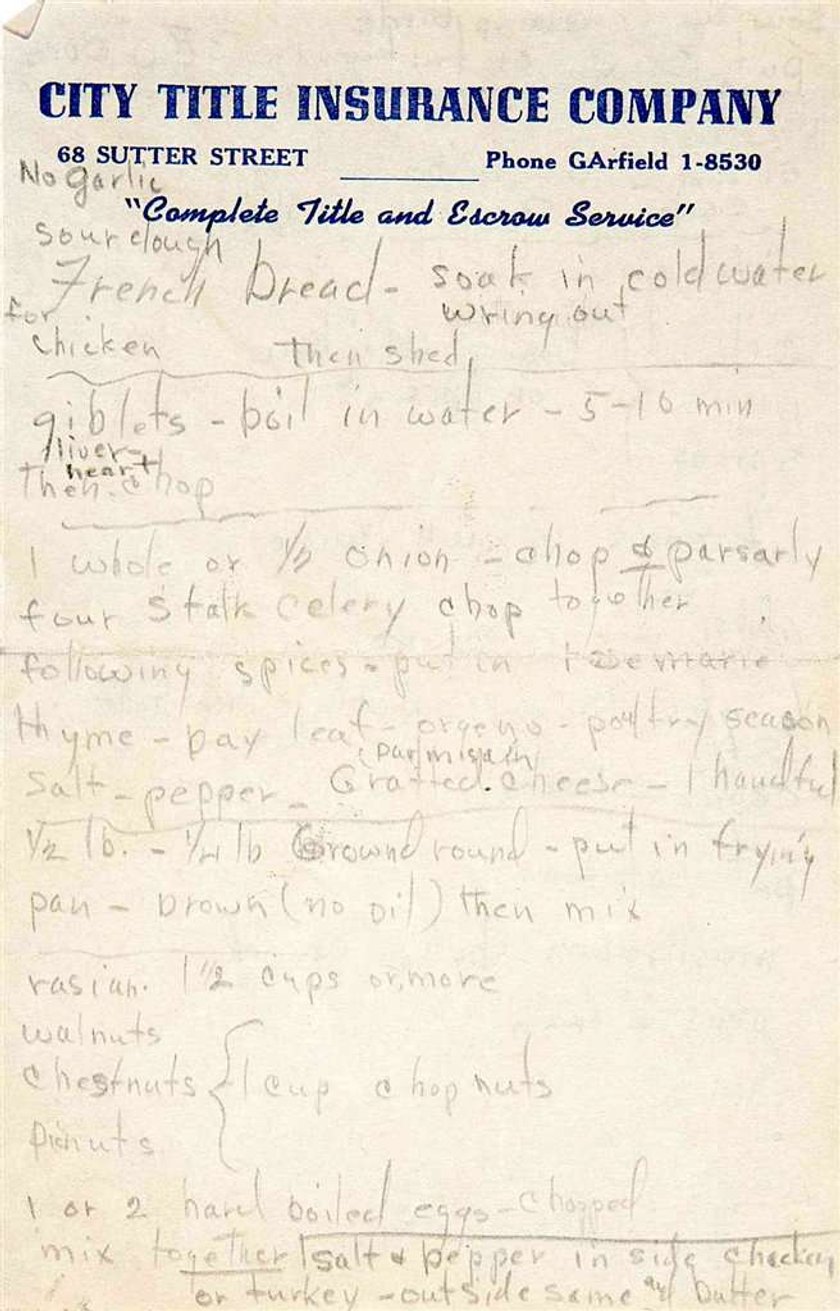 CITY TITLE INSURANCE COMPANY
68 SUTTER STREET
Phone GArfield 1-8530
No Garlic
"Complete Title and Escrow Service"
sourdough
French bread - soak in cold water
wring out
for
chicken then shed
giblets - boil in water - 5-10 min
liver -
heart
then chop
1 whole or 1/2 onion - chop & parsarly
four stalk celery chop together
following spices - put in rosemarie
thyme - bay leaf - orgeno - poltry season
(parmisain)
salt - pepper - Gratted cheese - 1 handful
1/2 lb. - 1/4 lb Ground round - put in frying
pan - brown (no oil) then mix
rasian. 1 1/2 cups or more
walnuts
chestnuts { 1 cup chop nuts
pinuts
1 or 2 hard boiled eggs - chopped
mix together salt & pepper in side chicken
or turkey - outside same and butter